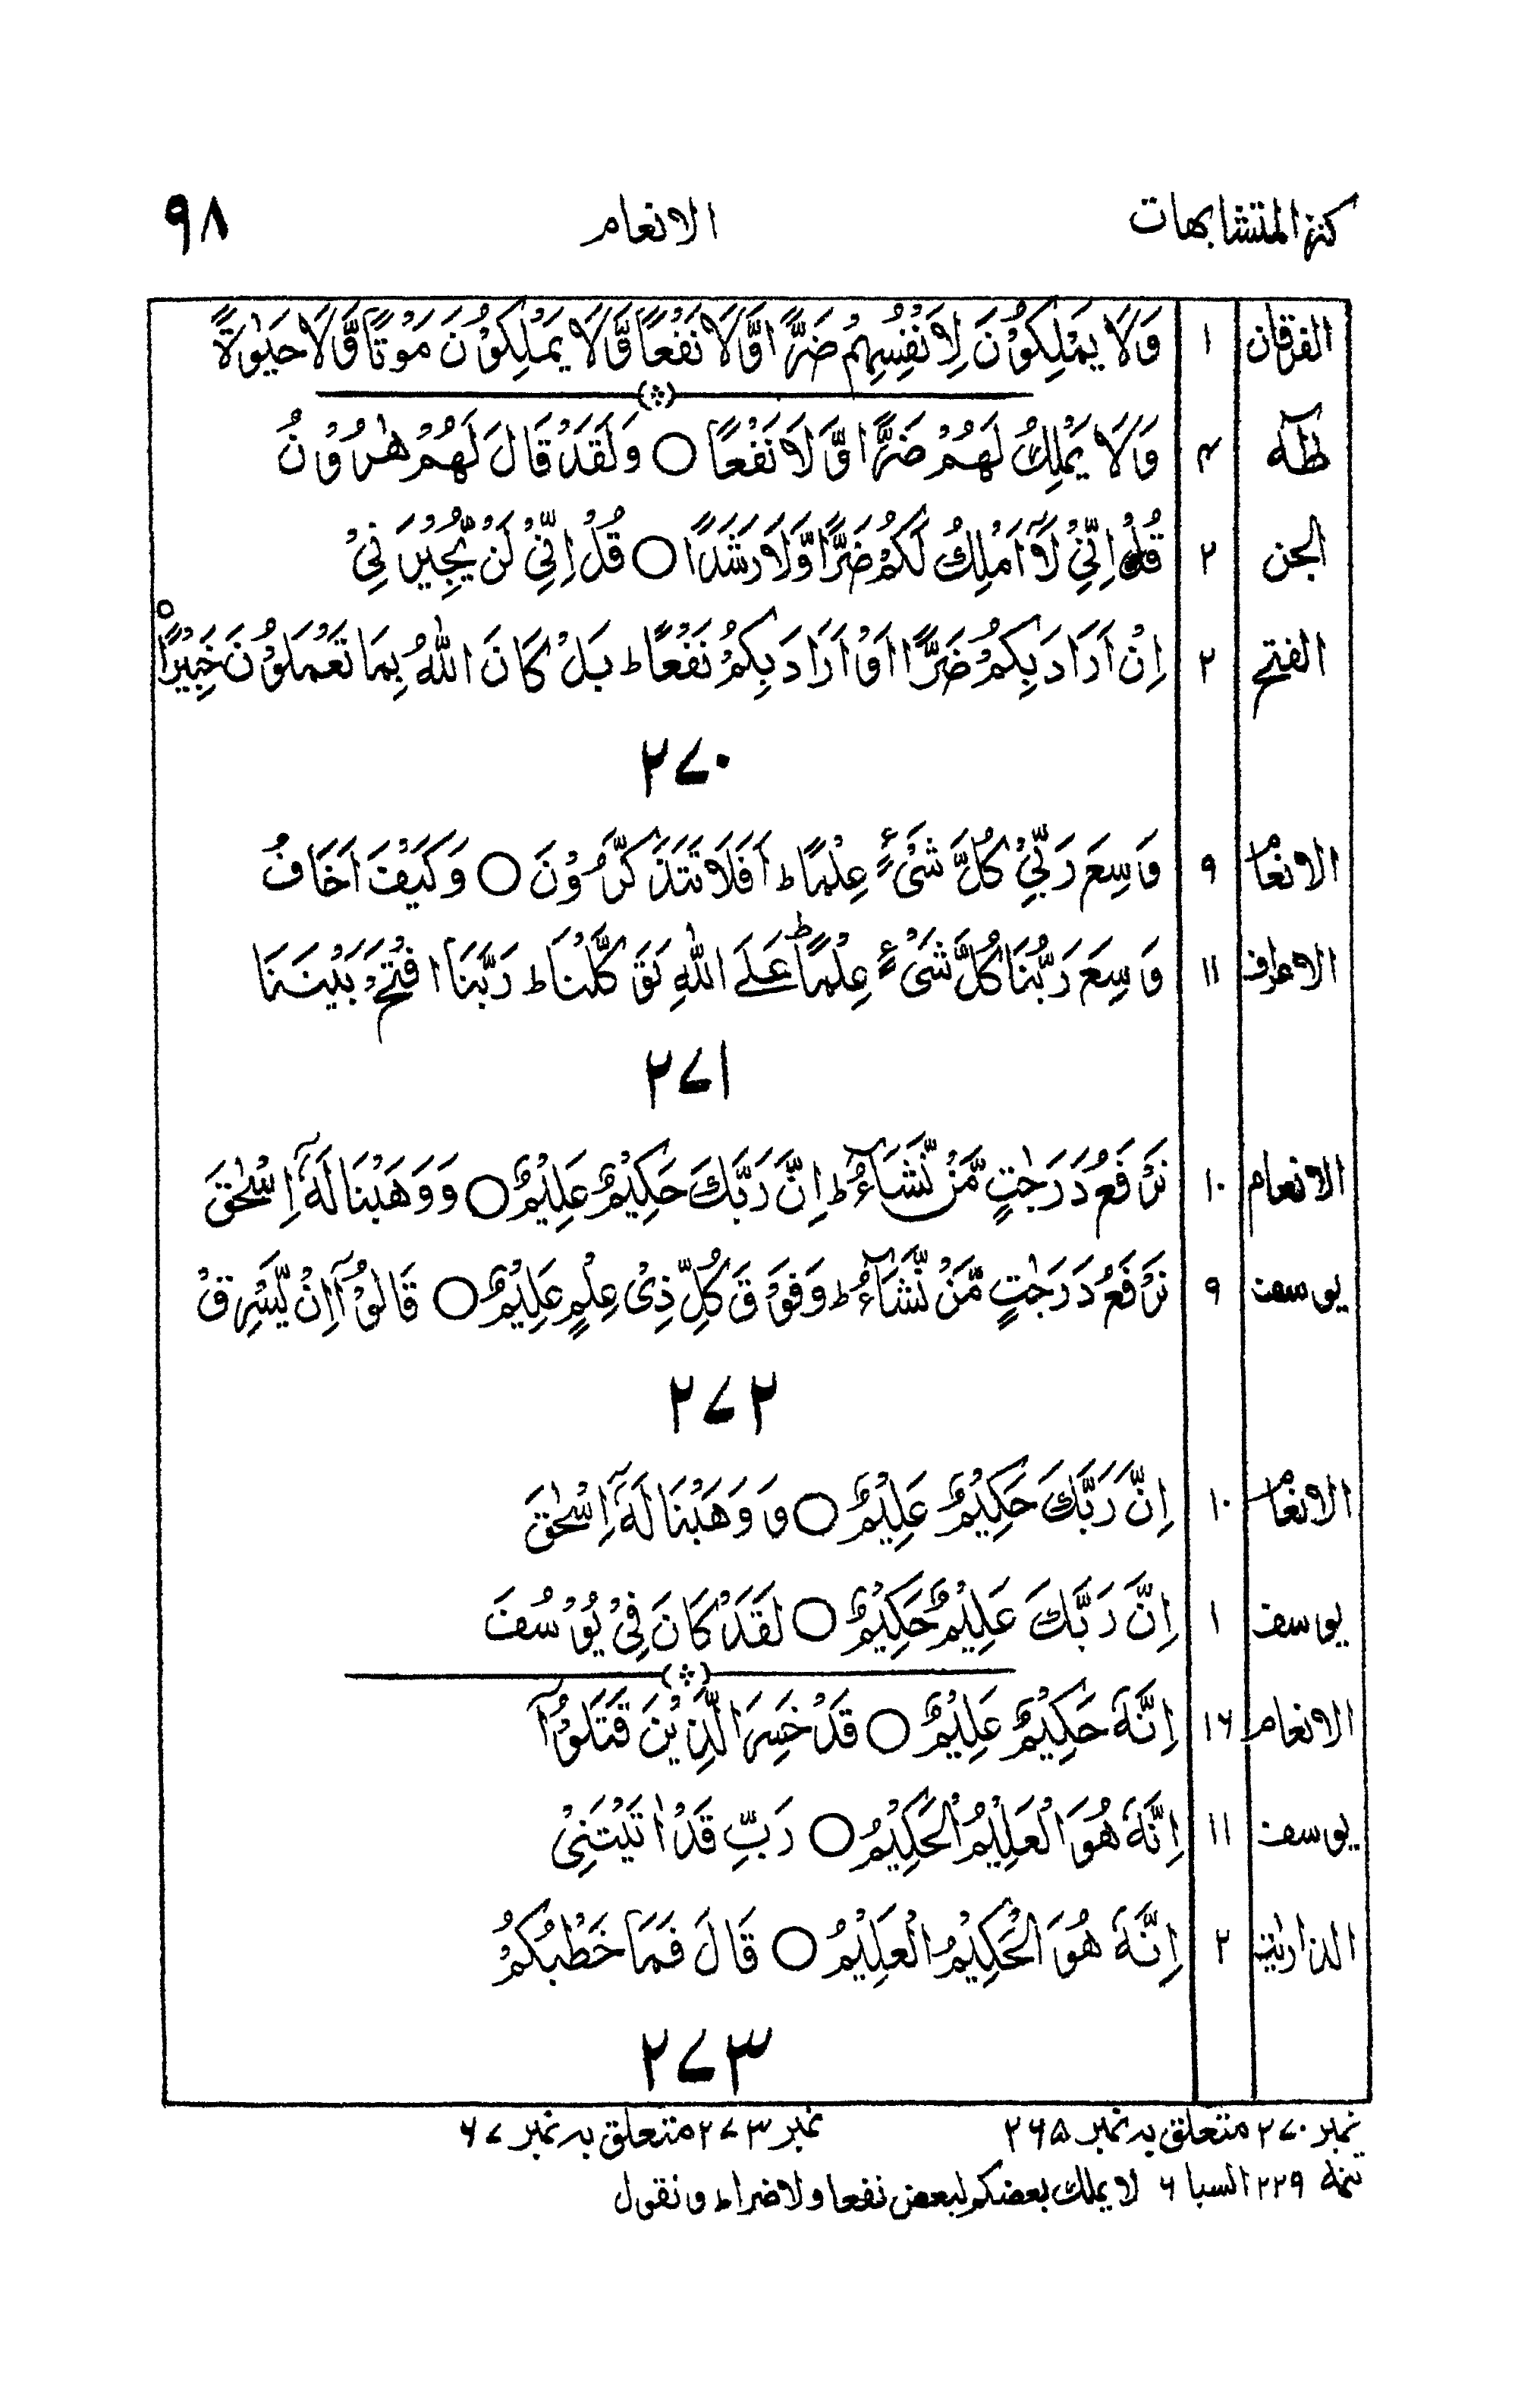 كنز المتشابهات الانعام ٩٨
الفرقان ١ وَلَا يَمْلِكُوْنَ لِاَنْفُسِهِمْ ضَرًّا وَّلَا نَفْعًا وَّلَا يَمْلِكُوْنَ مَوْتًا وَّلَا حَيٰوةً
طٰهٰ ٤ وَلَا يَمْلِكُ لَهُمْ ضَرًّا وَّلَا نَفْعًا ○ وَلَقَدْ قَالَ لَهُمْ هٰرُوْنُ
الجن ٢ قُلْ اِنِّيْ لَآ اَمْلِكُ لَكُمْ ضَرًّا وَّلَا رَشَدًا ○ قُلْ اِنِّيْ لَنْ يُّجِيْرَنِيْ
الفتح ٢ اِنْ اَرَادَ بِكُمْ ضَرًّا اَوْ اَرَادَ بِكُمْ نَفْعًا ط بَلْ كَانَ اللّٰهُ بِمَا تَعْمَلُوْنَ خَبِيْرًا ○
٢٧٠
الانعام ٩ وَسِعَ رَبِّيْ كُلَّ شَيْءٍ عِلْمًا ط اَفَلَا تَتَذَكَّرُوْنَ ○ وَكَيْفَ اَخَافُ
الاعراف ١١ وَسِعَ رَبُّنَا كُلَّ شَيْءٍ عِلْمًا ط عَلَے اللّٰهِ تَوَكَّلْنَا ط رَبَّنَا افْتَحْ بَيْنَنَا
٢٧١
الانعام ١٠ نَرْفَعُ دَرَجٰتٍ مَّنْ نَّشَآءُ ط اِنَّ رَبَّكَ حَكِيْمٌ عَلِيْمٌ ○ وَوَهَبْنَا لَهٗٓ اِسْحٰقَ
يوسف ٩ نَرْفَعُ دَرَجٰتٍ مَّنْ نَّشَآءُ ط وَفَوْقَ كُلِّ ذِيْ عِلْمٍ عَلِيْمٌ ○ قَالُوْٓا اِنْ يَّسْرِقْ
٢٧٢
الانعام ١٠ اِنَّ رَبَّكَ حَكِيْمٌ عَلِيْمٌ ○ وَوَهَبْنَا لَهٗٓ اِسْحٰقَ
يوسف ١ اِنَّ رَبَّكَ عَلِيْمٌ حَكِيْمٌ ○ لَقَدْ كَانَ فِيْ يُوْسُفَ
الانعام ١٦ اِنَّهٗ حَكِيْمٌ عَلِيْمٌ ○ قَدْ خَسِرَ الَّذِيْنَ قَتَلُوْٓا
يوسف ١١ اِنَّهٗ هُوَ الْعَلِيْمُ الْحَكِيْمُ ○ رَبِّ قَدْ اٰتَيْتَنِيْ
الذاريٰت ٢ اِنَّهٗ هُوَ الْحَكِيْمُ الْعَلِيْمُ ○ قَالَ فَمَا خَطْبُكُمْ
٢٧٣
نمبر ٢٧٠ متعلق به نمبر ٢٦٥ نمبر ٢٧٣ متعلق به نمبر ٦٧
تتمه ٢٢٩ السبا ٦ لا يملك بعضكم لبعض نفعا ولا ضرا ط ونقول